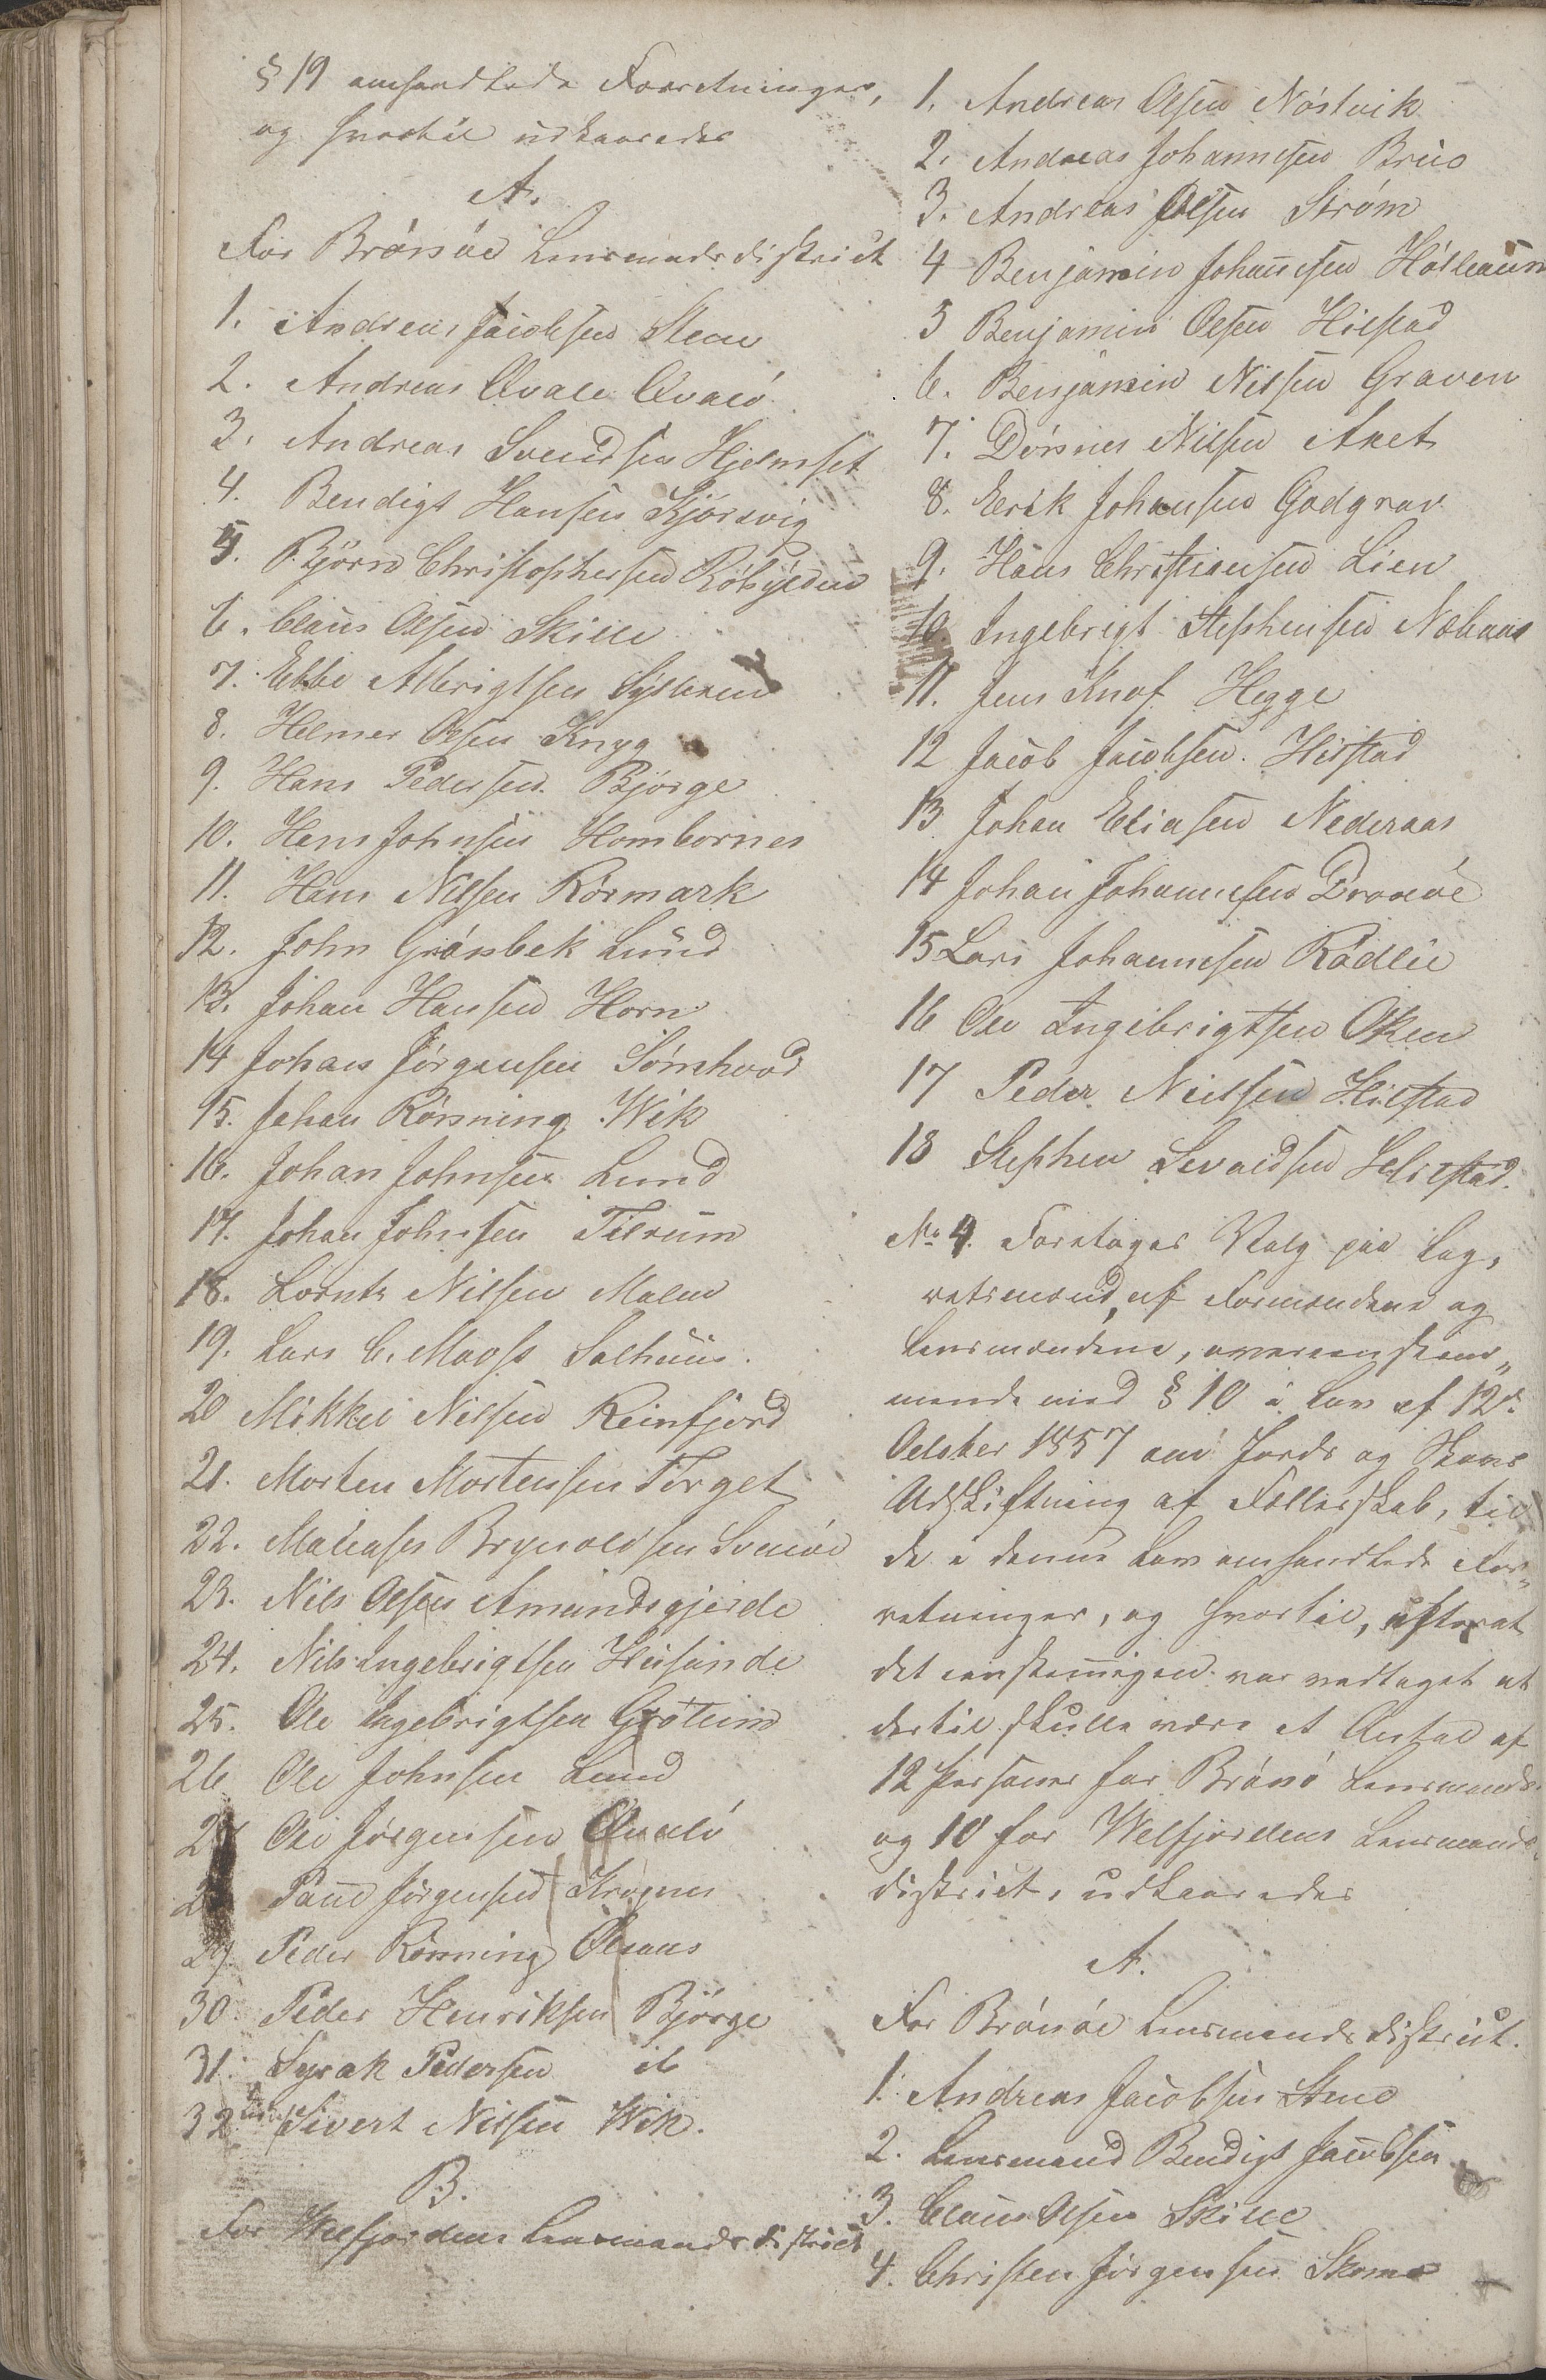 § 19 omhandlede Forretninger,
og hvortil udkaaredes
A.
For Brønøe Lensmandsdistrict
1. Andreas Jacobsen Steen
2. Andreas Qvale Qvalø
3. Andreas Svendsen Hjelmset
4. Bendigt Hansen Kjørsvig
5. Bjørn Christophersen Røbølden
6. Claus Olsen Skille
7. Ebbe Albrigtsen Sylteren
8. Helmer Olsen Knyg
9. Hans Pedersen Bjørge
10. Hans Johnsen Hombornes
11. Hans Nilsen Rørmark
12. John Grønbek Lund
13. Johan Hansen Horn
14 Johan Jørgensen Sømhovd
15. Johan Rønning Wik
16. Johan Johnsen Lund
17. Johan Johnsen Tilrum
18. Lornts Nilsen Malm
19. Lars C. Moass Salhuus.
20 Mikkel Nilsen Reinfjord
21. Morten Mortensen Torget
22. Brynoldsen
23. Nils Olsen Amundsgjerde
24. Nils Ingebrigtsen
25. Ole Ingebrigtsen
26 Ole Johnsen Lund
27 Ole Jørgensen Qvalø
28 Paul Jørgensen
29. Peder Rønning
30. Peder Henriksen Bjørge
31. Syrak Pedersen ib
32. Sivert Nilsen Wik.
B.
For Welfjordens Lensmandsdistrict
1. Andreas Olsen Nøstvik
2. Andreas Johannesen Bruo
3. Andreas Olsen Strøm
4 Benjamin Johannesen
5 Benjamin Olsen Hilstad
6. Benjamin Nilsen Graven
7. Dønnes Nilsen Aket
8. Erik Johansen Godgrav
9. Hans Christiansen Lien
10. Ingebrigt Stephensen
11. Jens Knof Hegge
12 Jacob Jacobsen. Hilstad
13 Johan Eliasen Nederaas
14 Johan Johannesen
15 Lars Johannesen Rødlie
16 Ole Ingebrigtsen
17 Peder Nielsen Hilstad
18 Stephen Sevaldsen Hilstad.
No 4. Foretoges Valg paa Lag,
retsmænd, af Formændene og
Lensmændene, overeenskom„
mende med § 10 i Lov af 12te
October 1857 om Jords og Skovs
Udskiftning af Fællesskab, til
de i denne Lov omhandlede For„
retninger, og hvortil, efterat
det eenstemmigen var vedtaget at
dertil skulle være et Antal af
12 Personer for Brønø Lensmands
og 10 for Welfjordens Lensmands
district, udkaaredes
A.
For Brønøe Lensmandsdistrict.
1. Andreas Jacobsen Steen
2. Lensmand Bendigt Jacobsen
3. Claus Olsen Skille
4. Christen Jørgensen